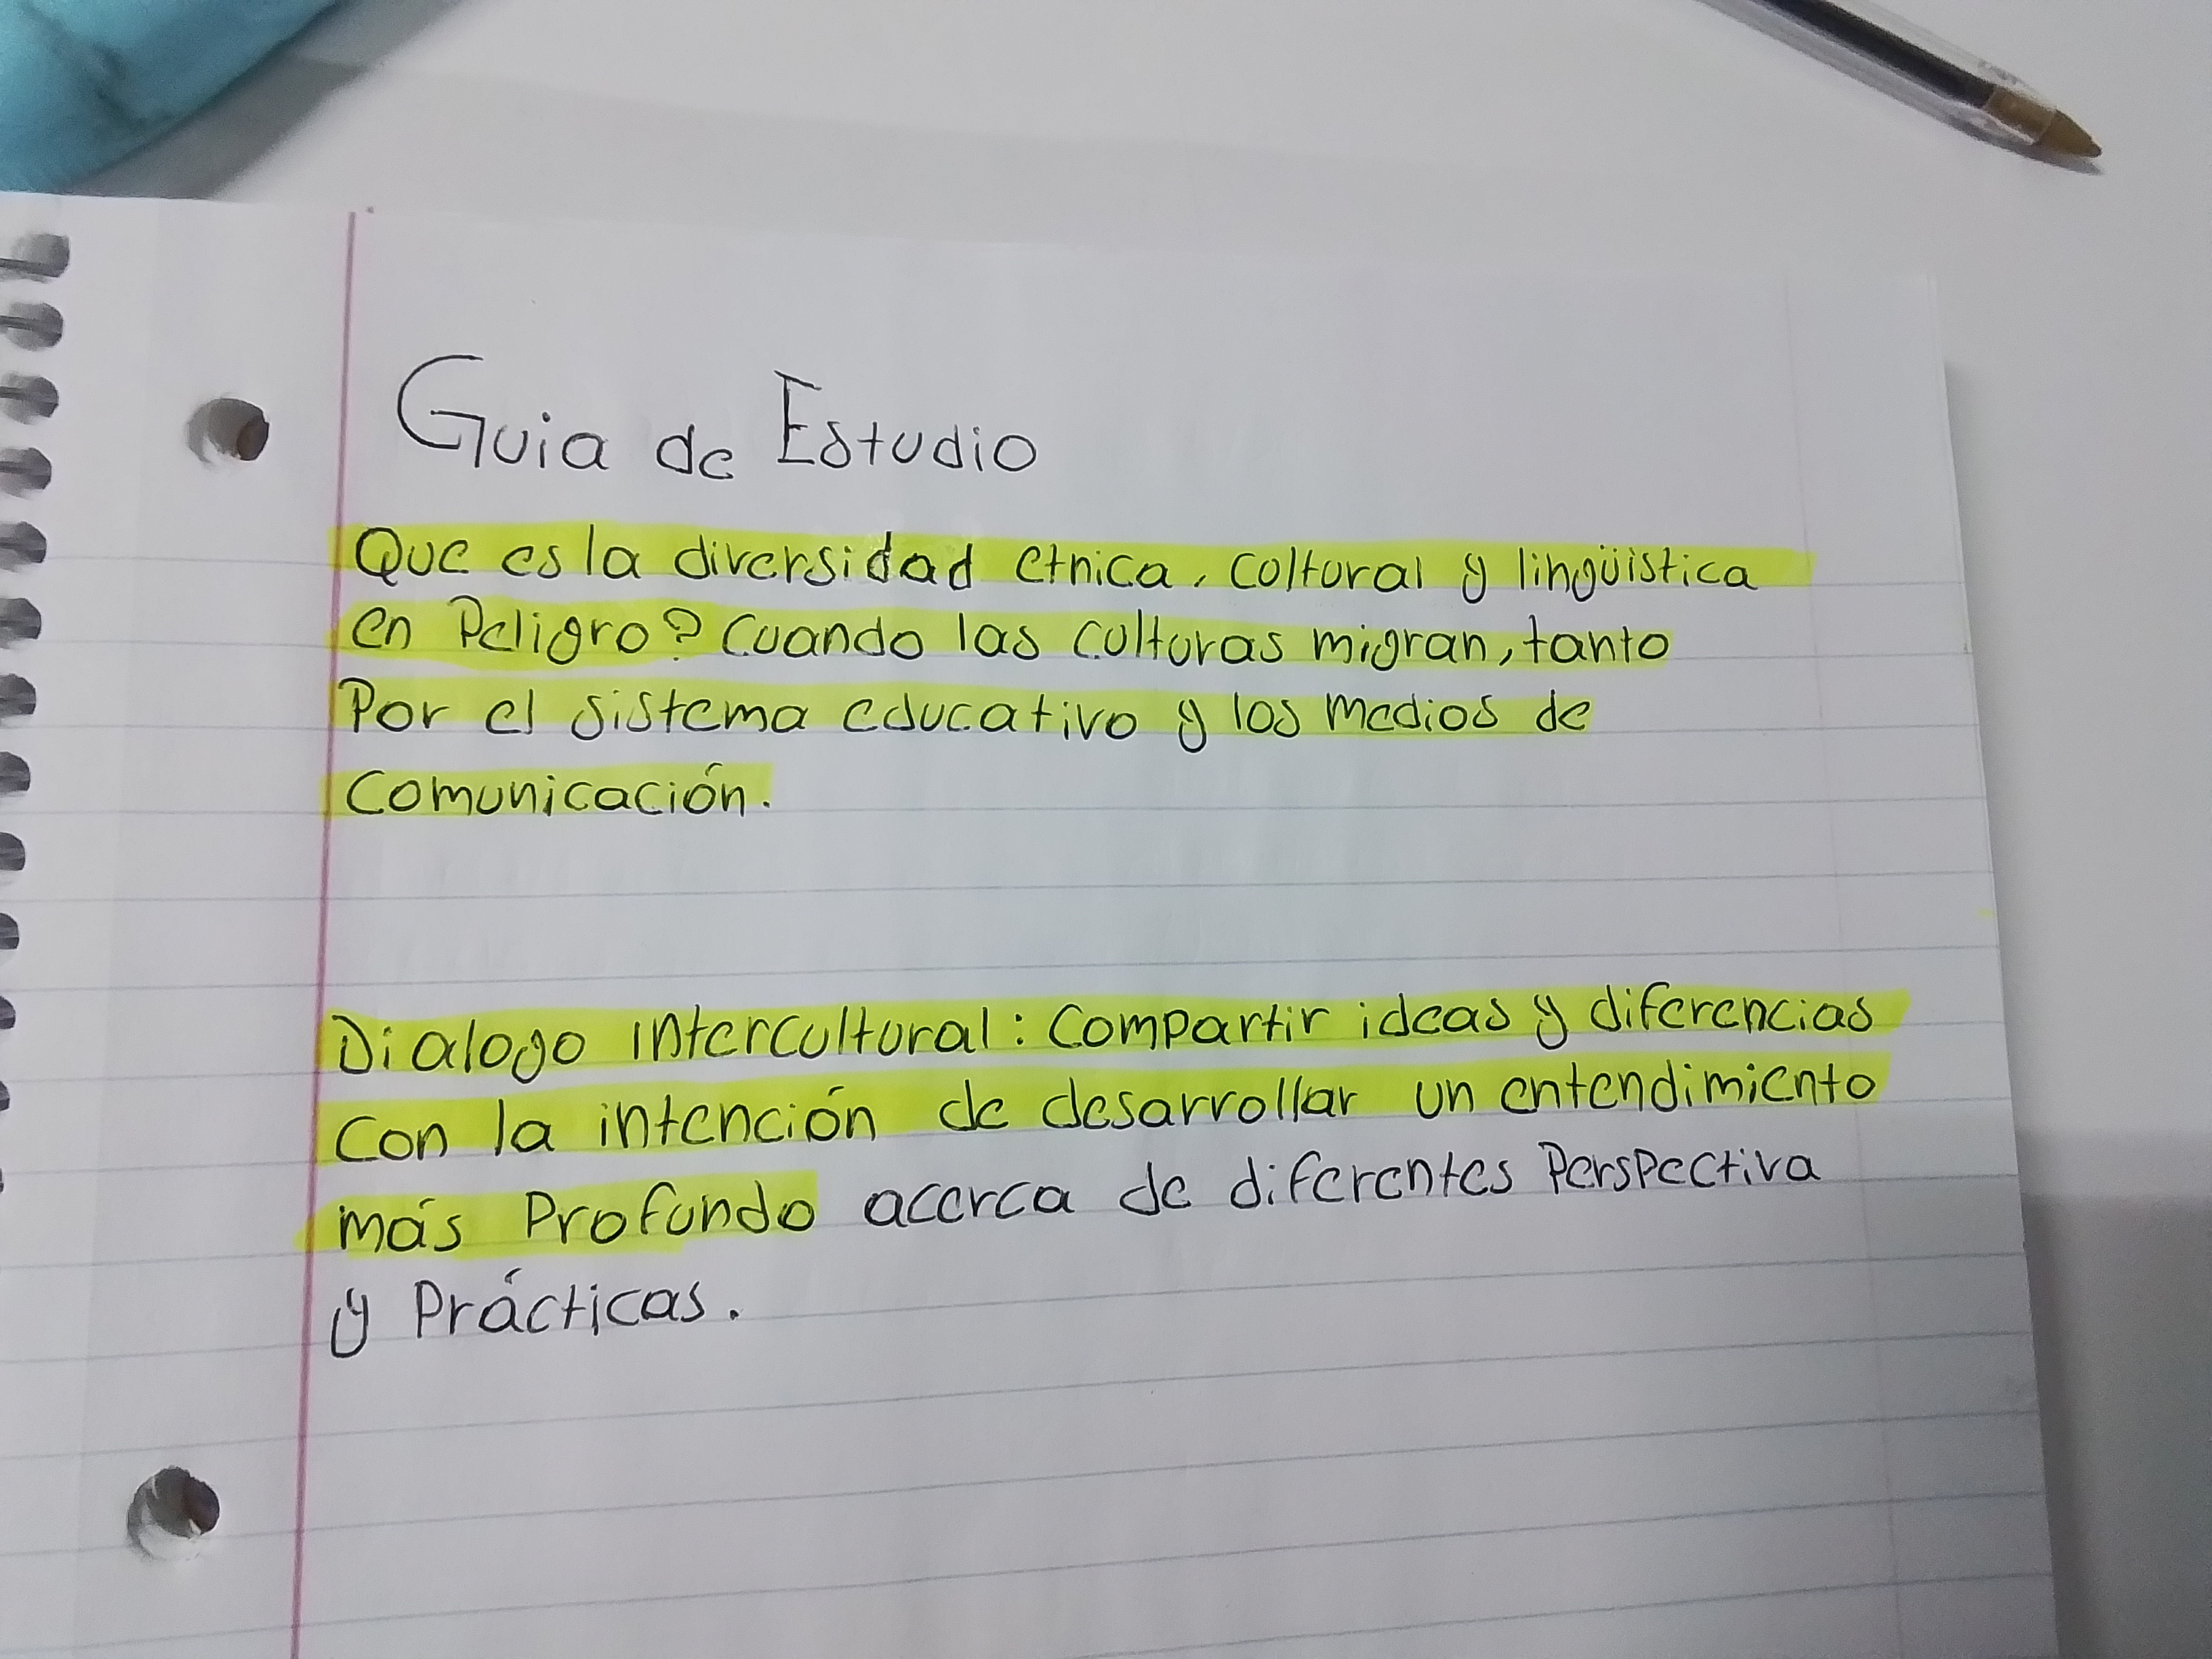 Guia de Estudio
Que es la diversidad etnica, coltural y lingüística
en Peligro? Cuando las culturas migran, tanto
Por el sistema educativo y los medios de
Comunicación.
Dialogo intercultural: Compartir ideas y diferencias
con la intención de desarrollar un entendimiento
más Profundo acerca de diferentes Perspectiva
y Prácticas.